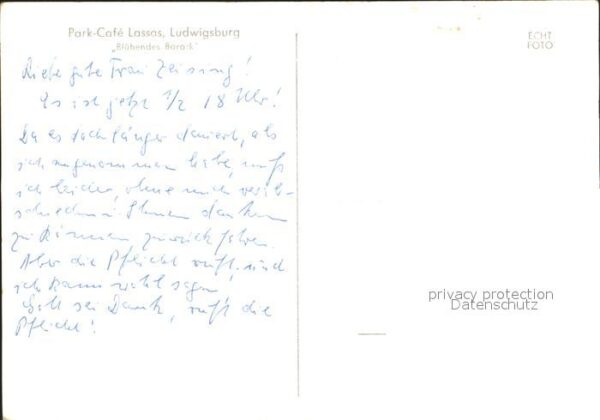 Park-Café Lassas, Ludwigsburg
"Blühendes Barock"
ECHT
FOTO
Liebe gute Frau Zeissing!
Es ist jetzt 1/2 18 Uhr!
Da es doch länger dauert, als
ich angenommen habe, muß
ich leider, ohne mich verab-
schieden u. Ihnen danken
zu können, zurückfahren.
Aber die Pflicht ruft und
ich kann wohl sagen,
Gott sei Dank, ruft die
Pflicht!
privacy protection
Datenschutz